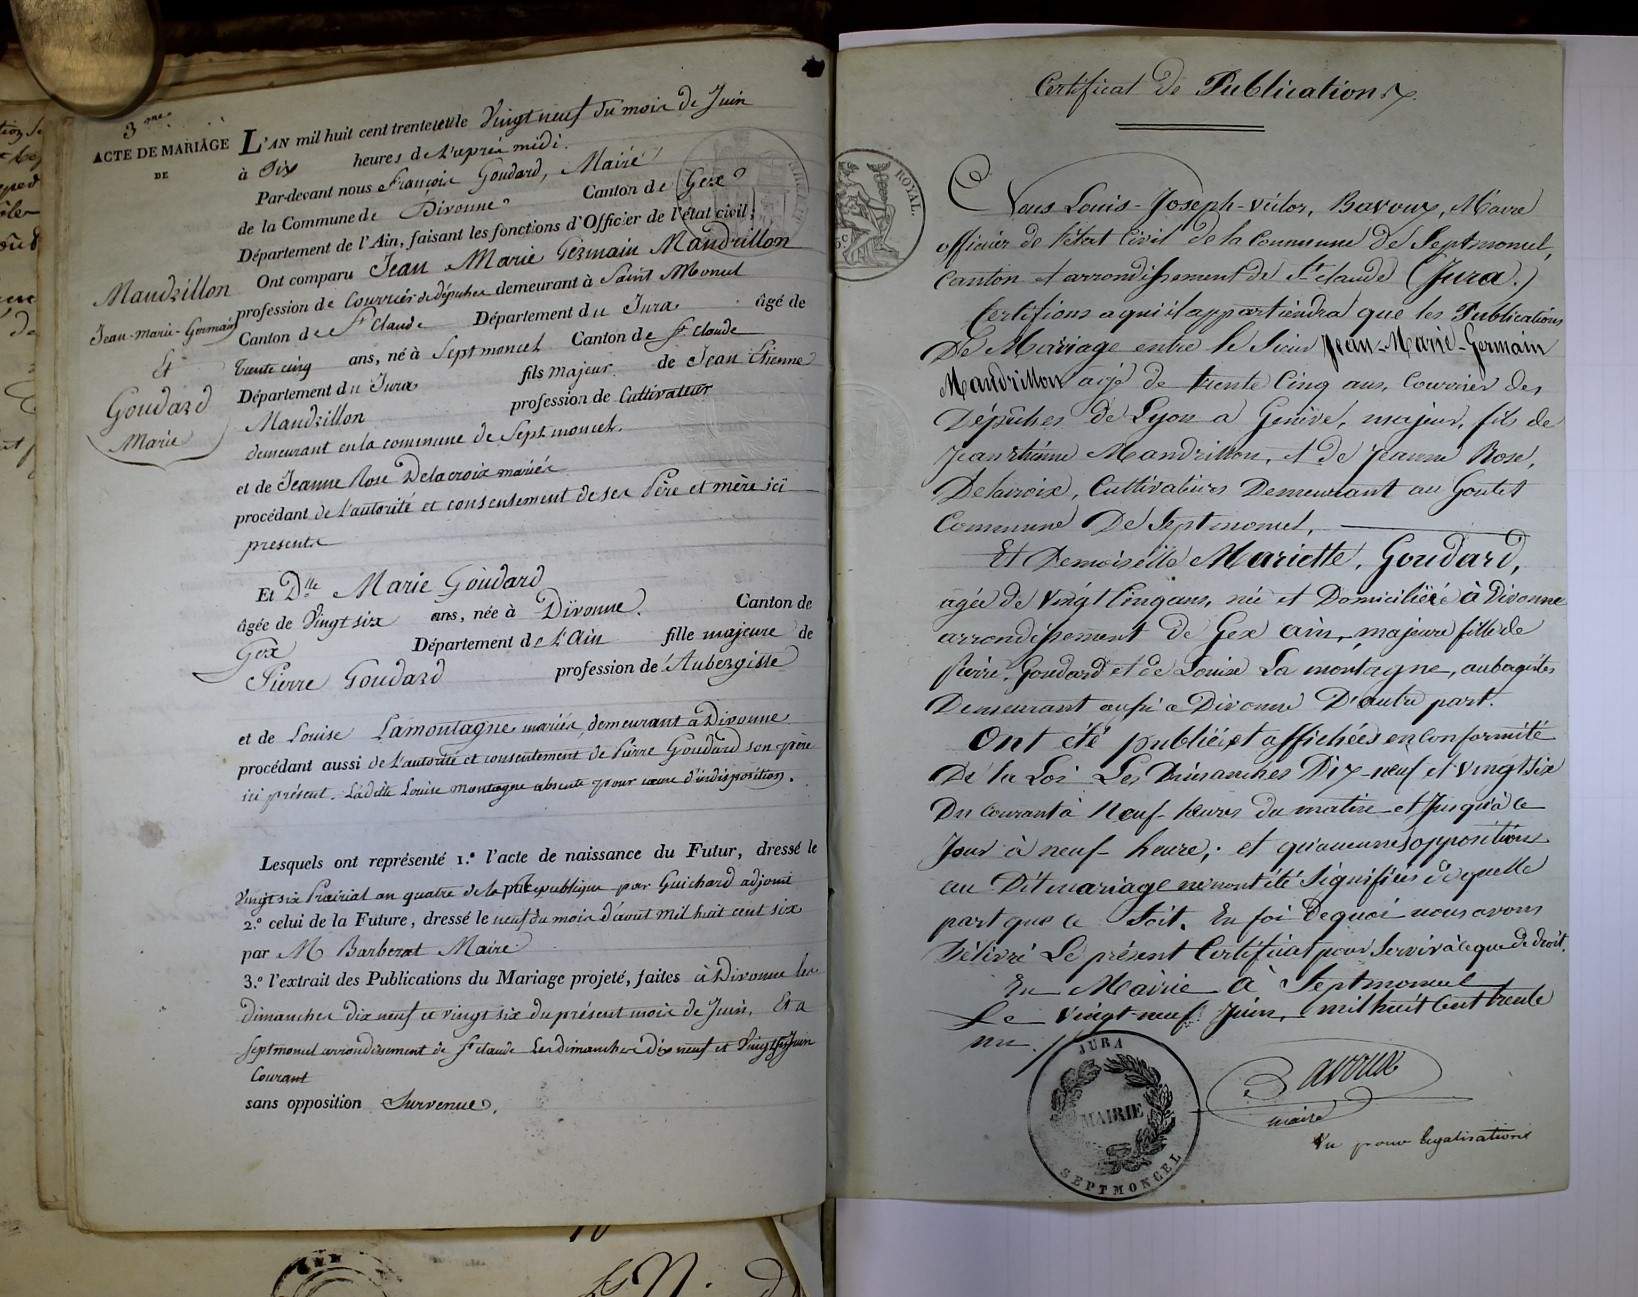 3me
ACTE DE MARIAGE
DE
Mandrillon
Jean-marie-Germain
Et
Goudard
Marie
L'AN mil huit cent trente et un le Vingt neuf du mois de Juin
à Dix heures de l'aprés midi.
Par-devant nous François Goudard, Maire
de la Commune de Divonne Canton de Gex
Département de l'Ain, faisant les fonctions d'Officier de l'état civil;
Ont comparu Jean Marie Germain Mandrillon
profession de Courrier de dépeches demeurant à Saint Monul
Canton de St Claude Département du Jura âgé de
trente cinq ans, né à Septmoncel Canton de St Claude
Département du Jura fils majeur de Jean Etienne
Mandrillon profession de Cultivateur
demeurant en la commune de Septmoncel.
et de Jeanne Rose Delacroix mariés
procédant de l'autorité et consentement de ses Père et mère ici
presents
Et Dlle Marie Goudard
âgée de Vingt six ans, née à Divonne. Canton de
Gex Département de l'Ain fille majeure de
Pierre Goudard profession de Aubergiste
et de Louise Lamontagne mariés, demeurant à Divonne
procédant aussi de l'autorité et consentement de Pierre Goudard son père
ici présent. Ladite Louise Montagne absente pour cause d'indisposition.
Lesquels ont représenté 1.° l'acte de naissance du Futur, dressé le
Vingt six Prairial an quatre de la République par Guichard adjoint
2.° celui de la Future, dressé le neuf du mois d'aout mil huit cent six
par M Barberat Maire
3.° l'extrait des Publications du Mariage projeté, faites à Divonne les
dimanches dix neuf et vingt six du présent mois de Juin, Et a
Septmoncel arrondissement de St claude Les dimanches Dix neuf et Vingt six Juin
Courant
sans opposition Survenue.
Certificat de Publications.
ROYAL.
Nous Louis-Joseph-victor, Bavoux, Maire
officier de l'état Civil de la Commune de Septmoncel,
Canton et arrondissement de St claude (Jura.)
Certifions a qui il appartiendra que les Publications
De Mariage entre le Sieur Jean-Marie-Germain
Mandrillon agé de trente Cinq ans, Courrier des
Dépêches de Lyon a Genêve, majeur, fils de
Jean Etienne Mandrillon, et de Jeanne Rose,
Delacroix, Cultivateurs Demeurant au Goutet
Commune De Septmoncel,
Et Demoiselle Mariette, Goudard,
agée de Vingt Cinq ans, née et Domiciliée à Divonne
arrondissement de Gex ain, majeure fille de
Pierre, Goudard et de Louise La montagne, aubagistes
Demeurant aussi a Divonne D'autre part.
Ont été publiées et affichées en Conformité
De la Loi Les Dimanches Dix-neuf et vingt six
Du Courant à Neuf heures du matin et Jusqu'à ce
Jour à neuf heure; et qu'aucunes oppositions
au Dit mariage ne nont été Signifiées de quelle
part que ce Soit. En foi de quoi nous avons
Délivré Le présent Certificat pour Servir à ce que de droit.
En Mairie à Septmoncel
Le Vingt neuf Juin, mil huit Cent trente
un.
JURA
MAIRIE
SEPTMONCEL
Bavoux
maire
Vu pour legalisation